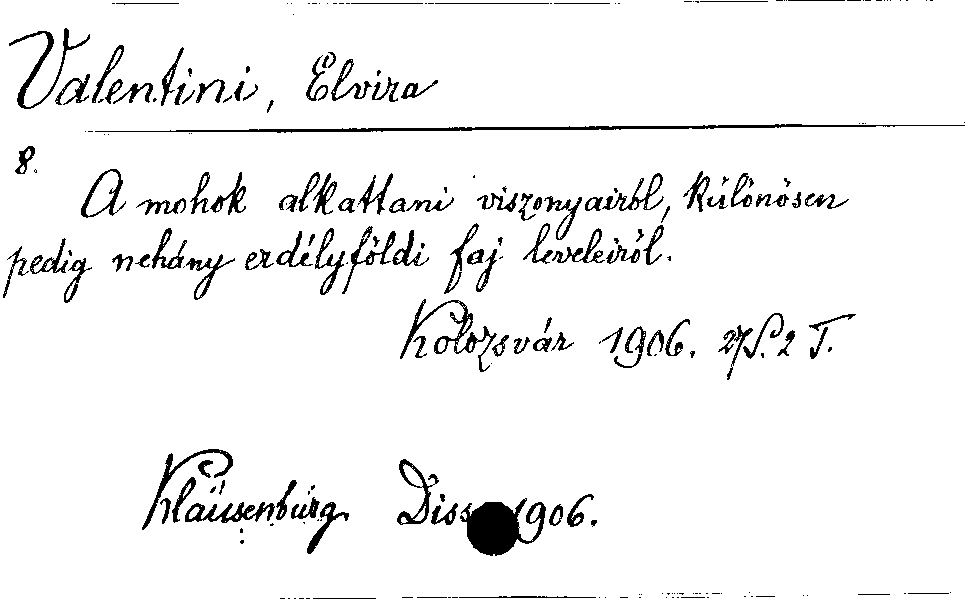 Valentini, Elvira
8.
A mohok alkattani viszonyairól, különösen
pedig nehány erdélyföldi faj leveleiről.
Kolozsvár 1906. 27 S. 2 T.
Klausenburg Diss 1906.